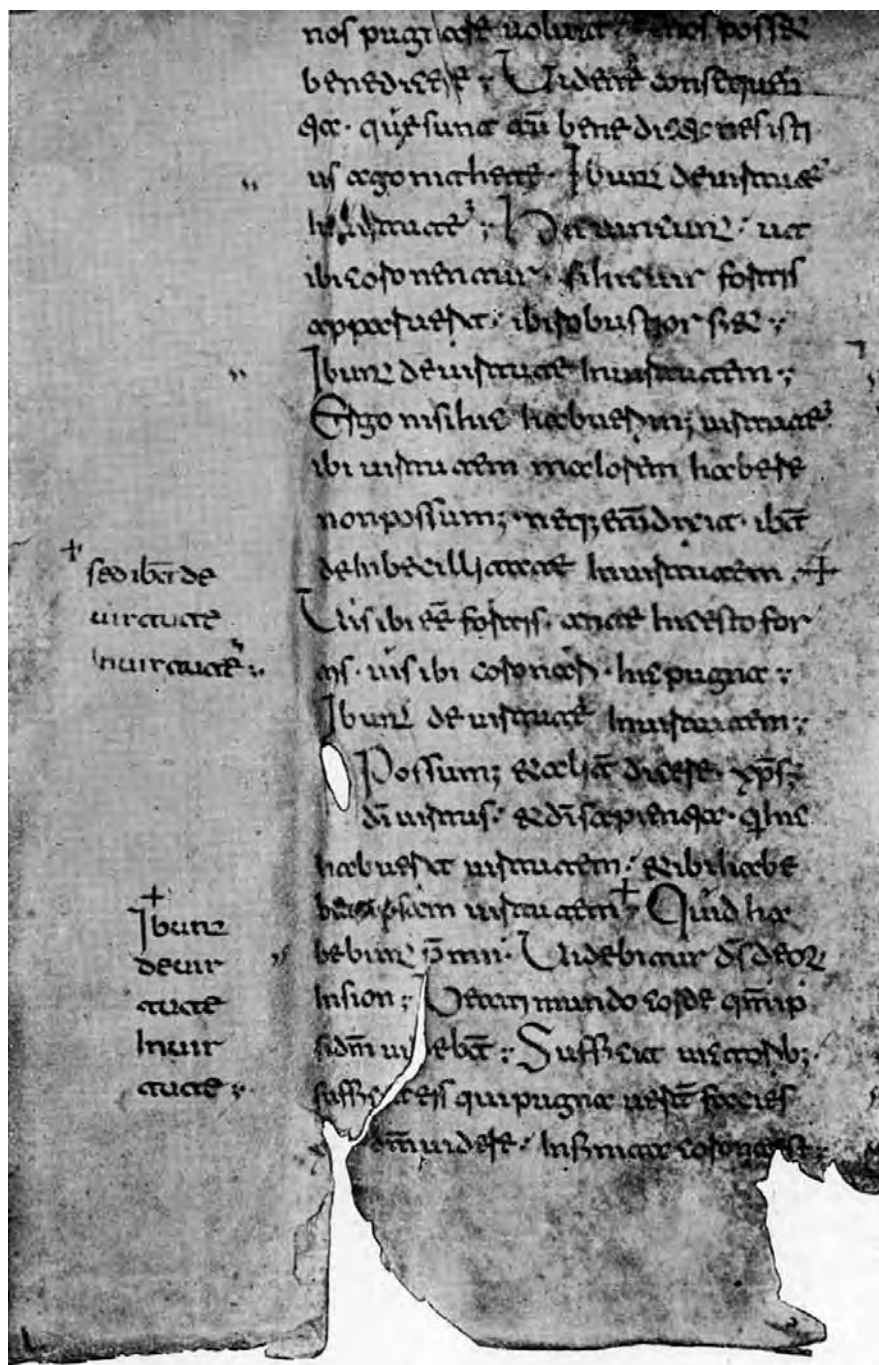 nos pugnare uoluit. nos posset
benedicere; Uidete consequen
tia. quę sunt aũ benedictiones isti
us agonithete. Ibunt de uirtutē
in uirtutē; Hic uincunt. ut
ibi coronentur. si hic uir fortis
apparuerit. ibi robustior fiet;
Ibunt de uirtute in uirtutem;
Ergo nisi hic habuerim; uirtutē
ibi uirtutem maiorem habere
non possum;. neq; enī dixit. ibāt
de inbecillitate in uirtutem. +
Uis ibi eē fortis. ante hic esto for
tis. uis ibi coronari. hic pugna;
Ibunt de uirtute in uirtutem;
Possum; et aliā dicere. xp̄s
dī uirtus. et dī sapientia. q hic
habuerit uirtutem. et ibi habe
bit ipsam uirtutem + Quid ha
bebunt p̄mii. Uidebitur d̄s deor
in sion; Beati mundo corde qm̄ ip
si dm̄ uidebt̄; Sufficit uictorib;
sufficit eis qui pugnauerāt facies
dm̄ uidere. infinita corona est
+ sed ibāt de
uirtute
in uirtutē;
+
Ibunt
de uir
tute
in uir
tutē;